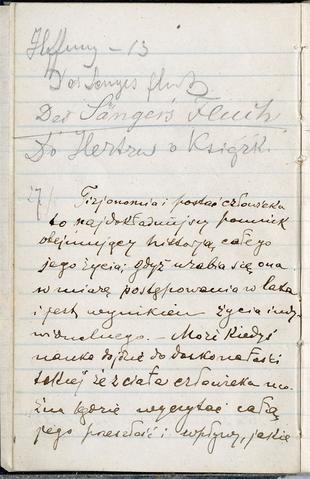 Hoffmg – 13
Des Sanges fluch
Des Sängers Fluch
Do Hertza o Książki
27/
Fizjonomia i postać człowieka
to najdokładniejszy pomnik
obejmujący historją całego
jego życia; gdyż urabia się ona
w miarę postępowania w lata
i jest wynikiem życia indy-
widualnego. – Może kiedyś
nauka dojdzie do doskonałości
takiej że z ciała człowieka mo-
żna będzie wyczytać całą
jego przeszłość i wpływy, jakie